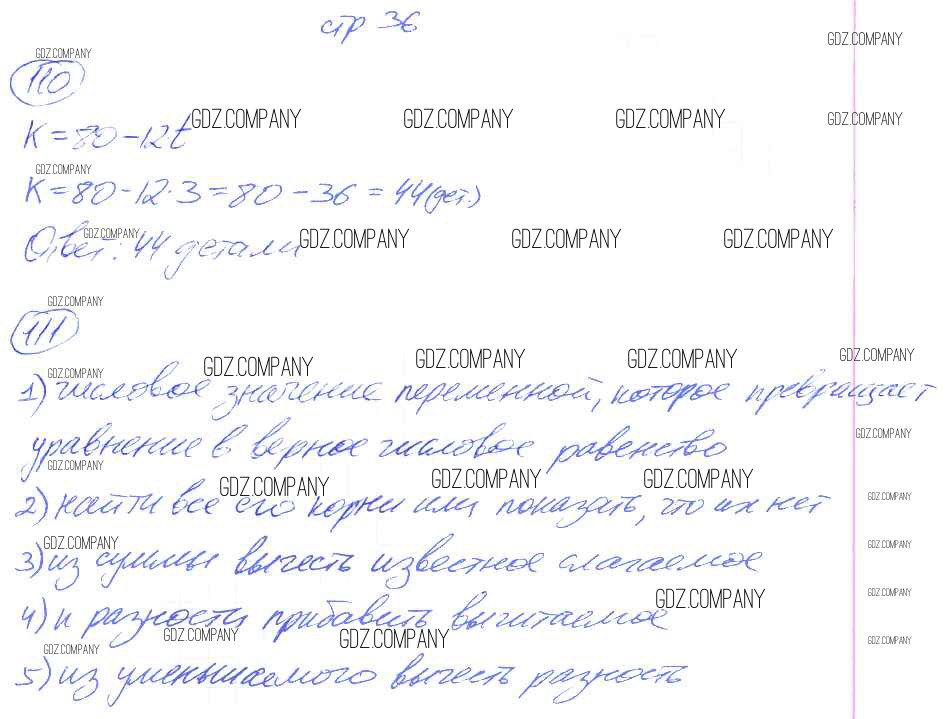 стр 36
GDZ.COMPANY
GDZ.COMPANY
110
GDZ.COMPANY GDZ.COMPANY GDZ.COMPANY GDZ.COMPANY
K = 80 - 12t
GDZ.COMPANY
K = 80 - 12·3 = 80 - 36 = 44 (дет.)
GDZ.COMPANY GDZ.COMPANY GDZ.COMPANY GDZ.COMPANY
Ответ: 44 детали
GDZ.COMPANY
111
GDZ.COMPANY GDZ.COMPANY GDZ.COMPANY GDZ.COMPANY GDZ.COMPANY
1) числовое значение переменной, которое превращает
GDZ.COMPANY
уравнение в верное числовое равенство
GDZ.COMPANY GDZ.COMPANY GDZ.COMPANY GDZ.COMPANY GDZ.COMPANY
2) найти все его корни или показать, что их нет
GDZ.COMPANY GDZ.COMPANY
3) из суммы вычесть известное слагаемое
GDZ.COMPANY GDZ.COMPANY
4) к разности прибавить вычитаемое
GDZ.COMPANY GDZ.COMPANY GDZ.COMPANY GDZ.COMPANY
5) из уменьшаемого вычесть разность